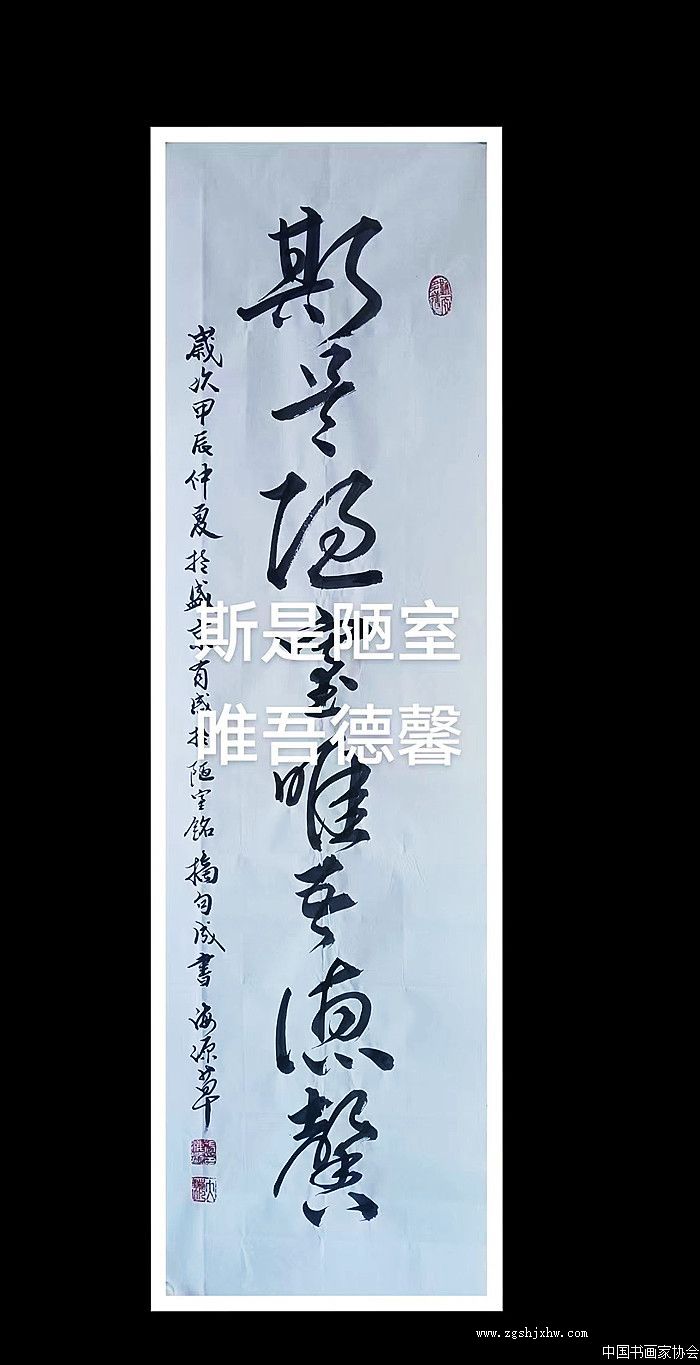 斯是陋室唯吾德馨
歲次甲辰仲夏於盛京有感於陋室銘摘句成書海源草
斯是陋室
唯吾德馨
www.zgshjxhw.com
中国书画家协会